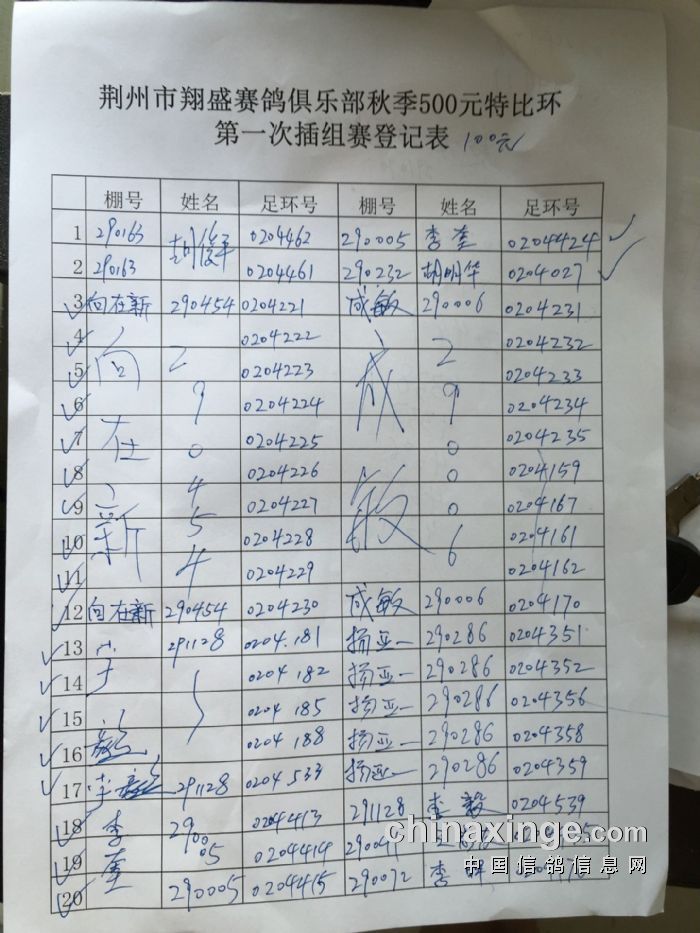 荆州市翔盛赛鸽俱乐部秋季500元特比环
第一次插组赛登记表 100元
棚号 姓名 足环号 棚号 姓名 足环号
1 290163 胡俊平 0204462 290005 李奎 0204424
2 290163 0204461 290232 胡明华 0204027
3 向在新 290454 0204221 成敏 290006 0204231
4 向在新 290454 0204222 成敏 290006 0204232
5 0204223 0204233
6 0204224 0204234
7 0204225 0204235
8 0204226 0204159
9 0204227 0204167
10 0204228 0204161
11 0204229 0204162
12 向在新 290454 0204230 成敏 290006 0204170
13 李 291128 0204.181 杨亚一 290286 0204351
14 0204 182 杨亚一 290286 0204352
15 0204 185 杨亚一 290286 0204356
16 0204 188 杨亚一 290286 0204358
17 李 291128 0204533 杨亚一 290286 0204359
18 李奎 290005 0204413 291128 李毅 0204539
19 0204414
20 290005 0204415 290072 李
chinaxinge.com
中国信鸽信息网